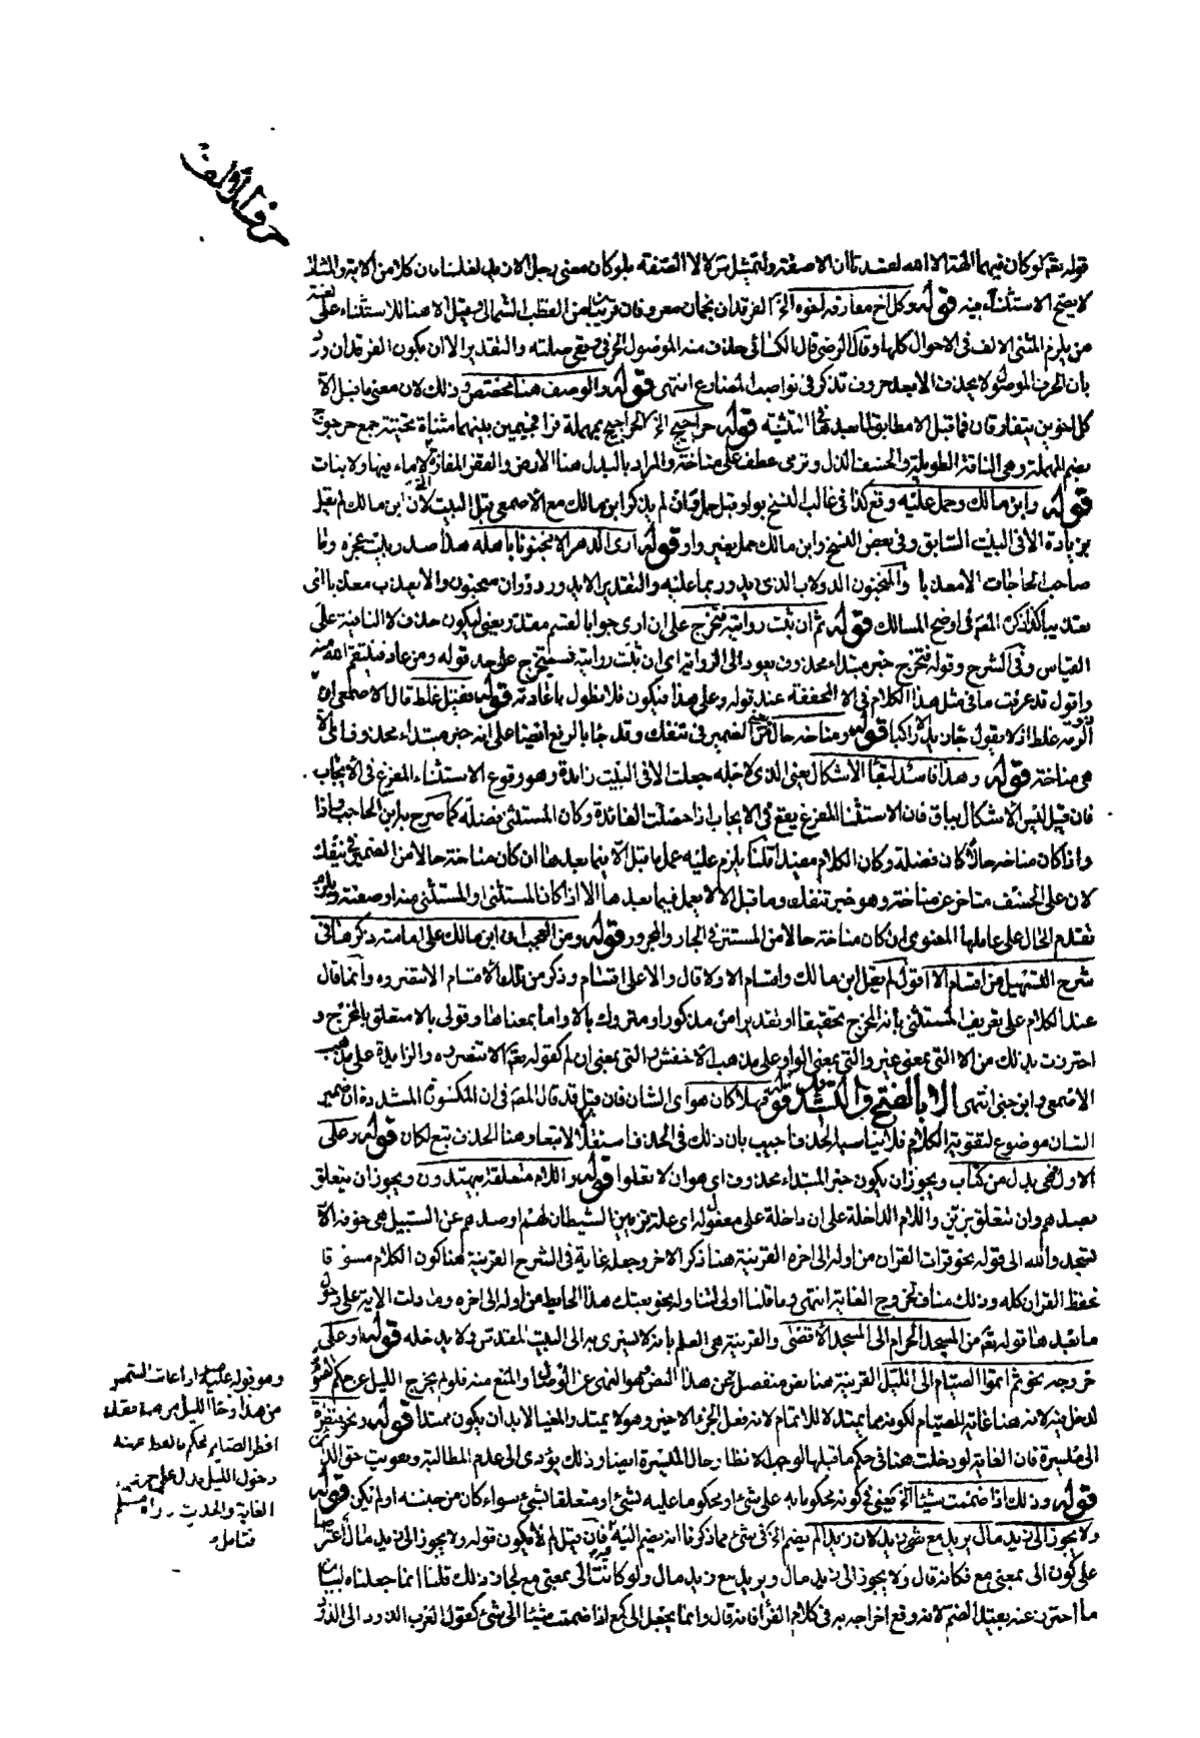 حرف الألف
قوله تعالى لو كان فيهما آلهة الا الله لفسدتا ان الا صفة ولتمثيل س لا لا الصفة بلو كان معنى رجل الا زيد لغلبنا فان كلا من الاية والمثال
لا يصح الاستثناء فيه قوله وكل اخ مفارقه اخوه الخ الفرقدان نجمان معروفان قريبان من القطب الشمالى وقيل الا هنا للاستثناء على لغة
من يلزم المثنى الالف فى الاحوال كلها وقال الرضى قال الكسائى حذف منه الموصول الحرفى وبقى صلته والتقدير الا ان يكون الفرقدان ورد
بان الحرف الموصول لا يحذف الا بعد حروف تذكر فى نواصب المضارع انتهى قوله والوصف هنا مخصص وذلك لان معنى ما قبل الا
كل اخوين يتفارقان فما قبل الا مطابق لما بعدها فى التثنية قوله حراجيج الخ الحراجيج بمهملة فراء فجيمين بينهما مثناة تحتية جمع حرجوج
بضم المهملة وهى الناقة الطويلة والخسف الذل ونرمى عطف على مناخة والمراد بالبلد هنا الارض والقفر المفازة لا ماء فيها ولا نبات
قوله وابن مالك وحمل عليه وقع كذا فى غالب النسخ بواو قبل حمل فان لم يذكر ابن مالك مع الاصمعى قبل البيت لان ابن مالك لم يقل
بزيادة الا فى البيت السابق وفى بعض النسخ وابن مالك حمل بغير واو قوله ارى الدهر الا منجنونا باهله هذا صدر بيت عجزه وما
صاحب الحاجات الا معذبا والمنجنون الدولاب الذى يدور بما عليه والتقدير الا يدور دوران منجنون والا يعذب معذبا اى
تعذيبا كذا ذكره المص فى اوضح المسالك قوله ثم ان ثبت روايته فتخرج على ان ارى جوابا لقسم مقدر يعنى ليكون حذف لا النافية على
القياس وفى الشرح وقوله فتخرج خبر مبتداء محذوف يعود الى الرواية اى ان ثبت روايته فستخرج على حد قوله ومن عاد فينتقم الله منه
واقول قد عرفت ما فى مثل هذا الكلام فى الا المخففة عند قوله وعلى هذا فيكون قوله فقيل غلط قال الاصمعى
ذو الرمة غلط اذ لا يقول جاء زيد الا راكبا قوله ومناخه حال من الضمير فى تنفك وقد جاء بالرفع ايضا على انه خبر مبتداء محذوف اى الا
هى مناخة قوله وهذا فاسد لبقاء الاشكال يعنى الذى لاجله جعلت الا فى البيت زايدة وهو وقوع الاستثناء المفرغ فى الايجاب
فان قيل ليس الاشكال بباق فان الاستثناء المفرغ يقع فى الايجاب اذا حصلت الفائدة وكان المستثنى فضلة كما صرح به ابن الحاجب
واذا كان مناخه حالا كان فضلة وكان الكلام مفيدا قلنا يلزم عليه عمل ما قبل الا فيما بعدها ان كان مناخة حالا من الضمير فى تنفك
لان على الخسف متاخر عن مناخة وهو خبر تنفك وما قبل الا لا يعمل فيما بعدها الا اذا كان المستثنى او المستثنى منه او صفته ويلزم
تقدم الحال على عاملها المعنوى ان كان مناخة حالا من المستتر فى الجار والمجرور قوله ومن العجب ان ابن مالك على امامته ذكرها فى
شرح التسهيل من اقسام الا اقول لم يقل ابن مالك واقسام الا ولا قال والا على اقسام وذكر من تلك الاقسام الا تنصروه وانما قال
عند الكلام على تعريف المستثنى بانه المخرج تحقيقا او تقديرا من مذكور او متروك بالا او ما بمعناها وقولى بالا متعلق بالمخرج و
احترزت بذلك من الا التى بمعنى غير والتى بمعنى الواو على مذهب الاخفش والتى بمعنى ان لم كقوله تعالى الا تنصروه والزايدة على مذهب
الاصمعى وابن جنى انتهى الا بالفتح والتشديد قوله فهلا كان هو اى الشان فان قيل قد قال المص فى ان المكسورة المشددة ان ضمير
الشان موضوع لتقوية الكلام فلا يناسبه الحذف اجيب بان ذلك فى الحذف استقلالا لا تبعا وهنا الحذف تبع لكان قوله وعلى
الاول هى بدل من كتاب ويجوز ان يكون خبر المبتداء محذوف اى هو ان لا تعلوا قوله واللام متعلقة بيهتدون ويجوز ان يتعلق
بصدهم وان تتعلق بزين واللام الداخلة على ان داخلة على مفعول له اى علة تزيين الشيطان لهم او صدهم عن السبيل هى خوف الا
يسجدوا لله الى قوله نحو قرات القران من اوله الى اخره القرينة هنا ذكر الاخر وجعله غاية فى الشرح القرينة هنا كون الكلام مسوقا
لحفظ القران كله وذلك مناف لخروج الغاية انتهى وما قلنا اولى لتناوله نحو بعتك هذا الحايط من اوله الى اخره وما دلت الاية على دخول
ما بعدها قوله تعالى من المسجد الحرام الى المسجد الاقصى والقرينة هى العلم بانه لا يسرى به الى البيت المقدس ولا يدخله قوله او على
خروجه نحو ثم اتموا الصيام الى الليل القرينة هنا نص منفصل عن هذا النص هو النهى عن الوصال والمنع منه فلو لم يخرج الليل عن حكم الصوم
لدخل فيه لانه هنا غاية الصيام لكونه مما يمتد لا للاتمام لانه فعل الجزء الاخير وهو لا يمتد والمغيا لا بد ان يكون ممتدا قوله ونحو فنظرة
الى ميسرة فان الغاية لو دخلت هنا فى حكم ما قبلها لوجب الانظار حال الميسرة ايضا وذلك يؤدى الى عدم المطالبة وتفويت حق الدائن
قوله وذلك اذا ضممت شيئا الخ يعنى فى كونه محكوما به على شئ او محكوما عليه لشئ او متعلقا لشئ سواء كان من جنسه او لم يكن قوله
ولا يجوز الى زيد مال يريد مع زيد لان زيدا لم يضم الى شئ مما ذكر فانه يضم اليه فان قيل لم لا يكون قوله ولا يجوز الى زيد مال اعتراضا
على كون الى بمعنى مع فكانه قال ولا يجوز الى زيد مال ويريد مع زيد مال ولو كانت الى بمعنى مع لجاز ذلك قلنا انما جعلناه لبيان
ما احترز عنه بقيد الضم لانه وقع اخراجه به فى كلام الفراء فانه قال وانما يجعل الى كمع اذا ضممت شيئا الى شئ كقول العرب الذود الى الذود
وهو قوله عليه اذا غابت الشمس
من هذا وجاء الليل من ههنا فقد
افطر الصايم
دخول الليل يدل على خروج
الغاية والحديث رواه مسلم
فتامل